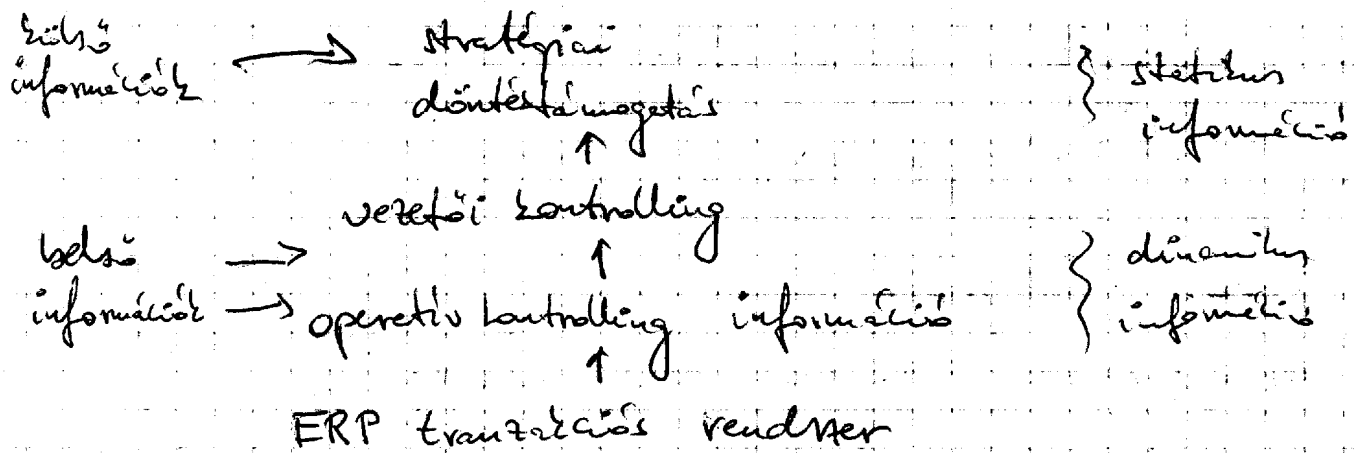 külső
információk → stratégiai
döntéstámogatás } statikus
információ
↑
vezetői kontrolling
belső → ↑ } dinamikus
információk → operatív kontrolling információ információ
↑
ERP tranzakciós rendszer